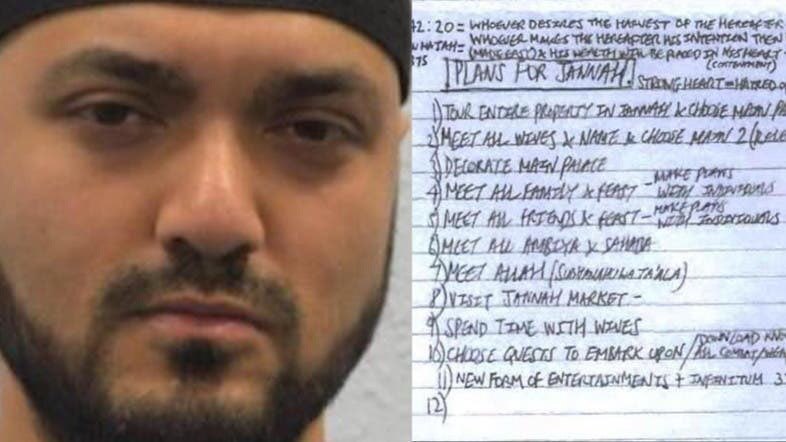 42:20 = WHOEVER DESIRES THE HARVEST OF THE HEREAFTER
WHOEVER MAKES THE HEREAFTER HIS INTENTION THEN
(MADE EASY) & HIS WEALTH WILL BE PLACED IN HIS HEART
(CONTENTMENT)
PLANS FOR JANNAH.
STRONG HEART = HATRED OF
1) TOUR ENTIRE PROPERTY IN JANNAH & CHOOSE MAIN
2) MEET ALL WIVES & NAME & CHOOSE MAIN 2
3) DECORATE MAIN PALACE
4) MEET ALL FAMILY & FEAST - MAKE PLANS WITH INDIVIDUALS
5) MEET ALL FRIENDS & FEAST - MAKE PLANS WITH INDIVIDUALS
6) MEET ALL ANBIYA & SAHABA
7) MEET ALLAH
8) VISIT JANNAH MARKET -
9) SPEND TIME WITH WIVES
10) CHOOSE QUESTS TO EMBARK UPON / DOWNLOAD
11) NEW FORM OF ENTERTAINMENTS + INFINITUM
12)